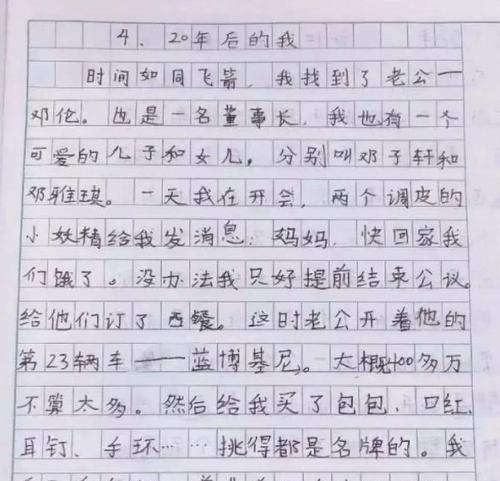 4、20年后的我
时间如同飞箭，我找到了老公一
邓伦。也是一名董事长，我也有一个
可爱的儿子和女儿，分别叫邓子轩和
邓雅琪。一天我在开会，两个调皮的
小妖精给我发消息：妈妈，快回家我
们饿了。没办法我只好提前结束公议。
给他们订了西餐。这时老公开着他的
第23辆车——蓝博基尼。大概400多万
不算太多。然后给我买了包包、口红、
耳钉、手环……挑得都是名牌的。我